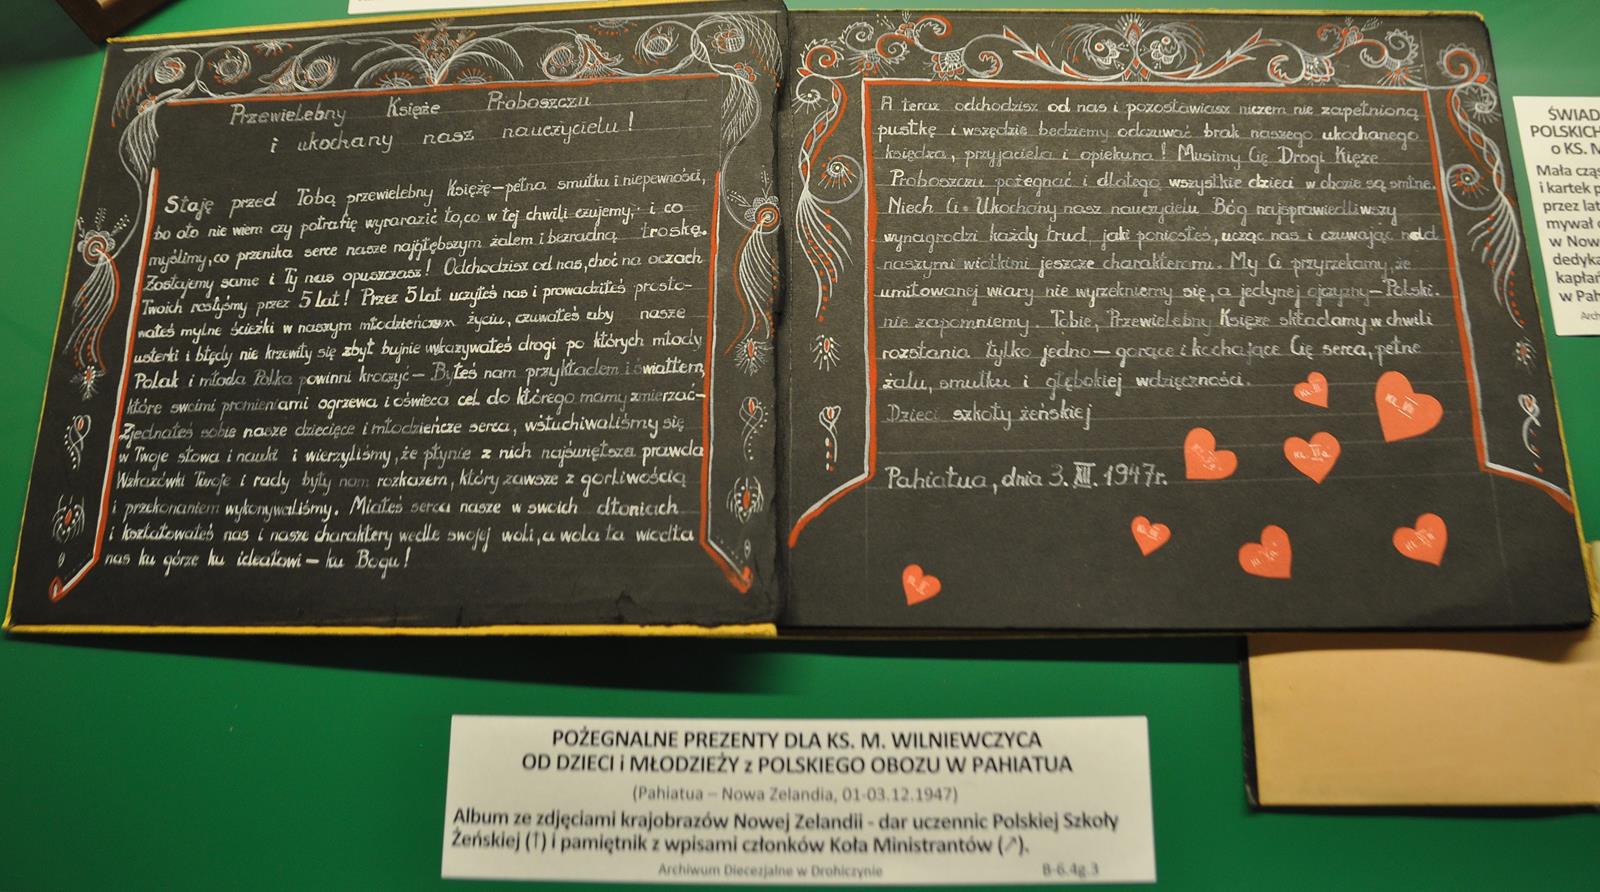 Przewielebny Księże Proboszczu
i ukochany nasz nauczycielu!
Staję przed Tobą przewielebny Księżę – pełna smutku i niepewności,
bo oto nie wiem czy potrafię wyrarazić to, co w tej chwili czujemy, i co
myślimy, co przenika serce nasze najgłębszym żalem i bezradną troskę.
Zostajemy same i Ty nas opuszczasz! Odchodzisz od nas, choć na oczach
Twoich rosłyśmy przez 5 lat! Przez 5 lat uczyłeś nas i prowadziłeś prosto-
wałeś mylne ścieżki w naszym młodzieńczym życiu, czuwałeś aby nasze
usterki i błędy nie krzewiły się zbyt bujnie wykazywałeś drogi po których młody
Polak i młoda Polka powinni kroczyć – Byłeś nam przykładem i światłem,
które swoimi promieniami ogrzewa i oświeca cel do którego mamy zmierzać –
Zjednałeś sobie nasze dziecięce i młodzieńcze serca, wsłuchiwaliśmy się
w Twoje słowa i nauki i wierzyliśmy, że płynie z nich najświętsza prawda
Wskazówki Twoje i rady były nam rozkazem, który zawsze z gorliwością
i przekonaniem wykonywaliśmy. Miałeś serca nasze w swoich dłoniach
i kształtowałeś nas i nasze charaktery wedle swojej woli, a wola ta wiodła
nas ku górze ku ideałowi – ku Bogu!
A teraz odchodzisz od nas i pozostawiasz niczem nie zapełnioną
pustkę i wszędzie bedziemy odczuwać brak naszego ukochanego
księdza, przyjaciela i opiekuna! Musimy Cię Drogi Kięże
Proboszczu pożegnać i dlatego wszystkie dzieci w obozie są smtne.
Niech Ci Ukochany nasz nauczycielu Bóg najsprawiedliwszy
wynagrodzi każdy trud, jaki poniosłeś, ucząc nas i czuwając nad
naszymi wiotkimi jeszcze charakterami. My Ci przyrzekamy, że
umiłowanej wiary nie wyrzekniemy się, a jedynej ojczyzny – Polski.
nie zapomniemy. Tobie, Przewielebny Księże składamy w chwili
rozstania tylko jedno – gorące i kochające Cię serca, pełne
żalu, smutku i głębokiej wdzięczności.
Dzieci szkoły żeńskiej
Pahiatua, dnia 3. XII. 1947r.
KL. III
KL. VII
KL. VIa
POŻEGNALNE PREZENTY DLA KS. M. WILNIEWCZYCA
OD DZIECI i MŁODZIEŻY z POLSKIEGO OBOZU W PAHIATUA
(Pahiatua – Nowa Zelandia, 01-03.12.1947)
Album ze zdjęciami krajobrazów Nowej Zelandii - dar uczennic Polskiej Szkoły
Żeńskiej (↑) i pamiętnik z wpisami członków Koła Ministrantów (↗).
Archiwum Diecezjalne w Drohiczynie B-6.4g.3
ŚWIAD
POLSKICH
o KS. M
Mała cząs
i kartek p
przez lat
mywał
w Now
dedyka
kapłań
w Pah
Arch